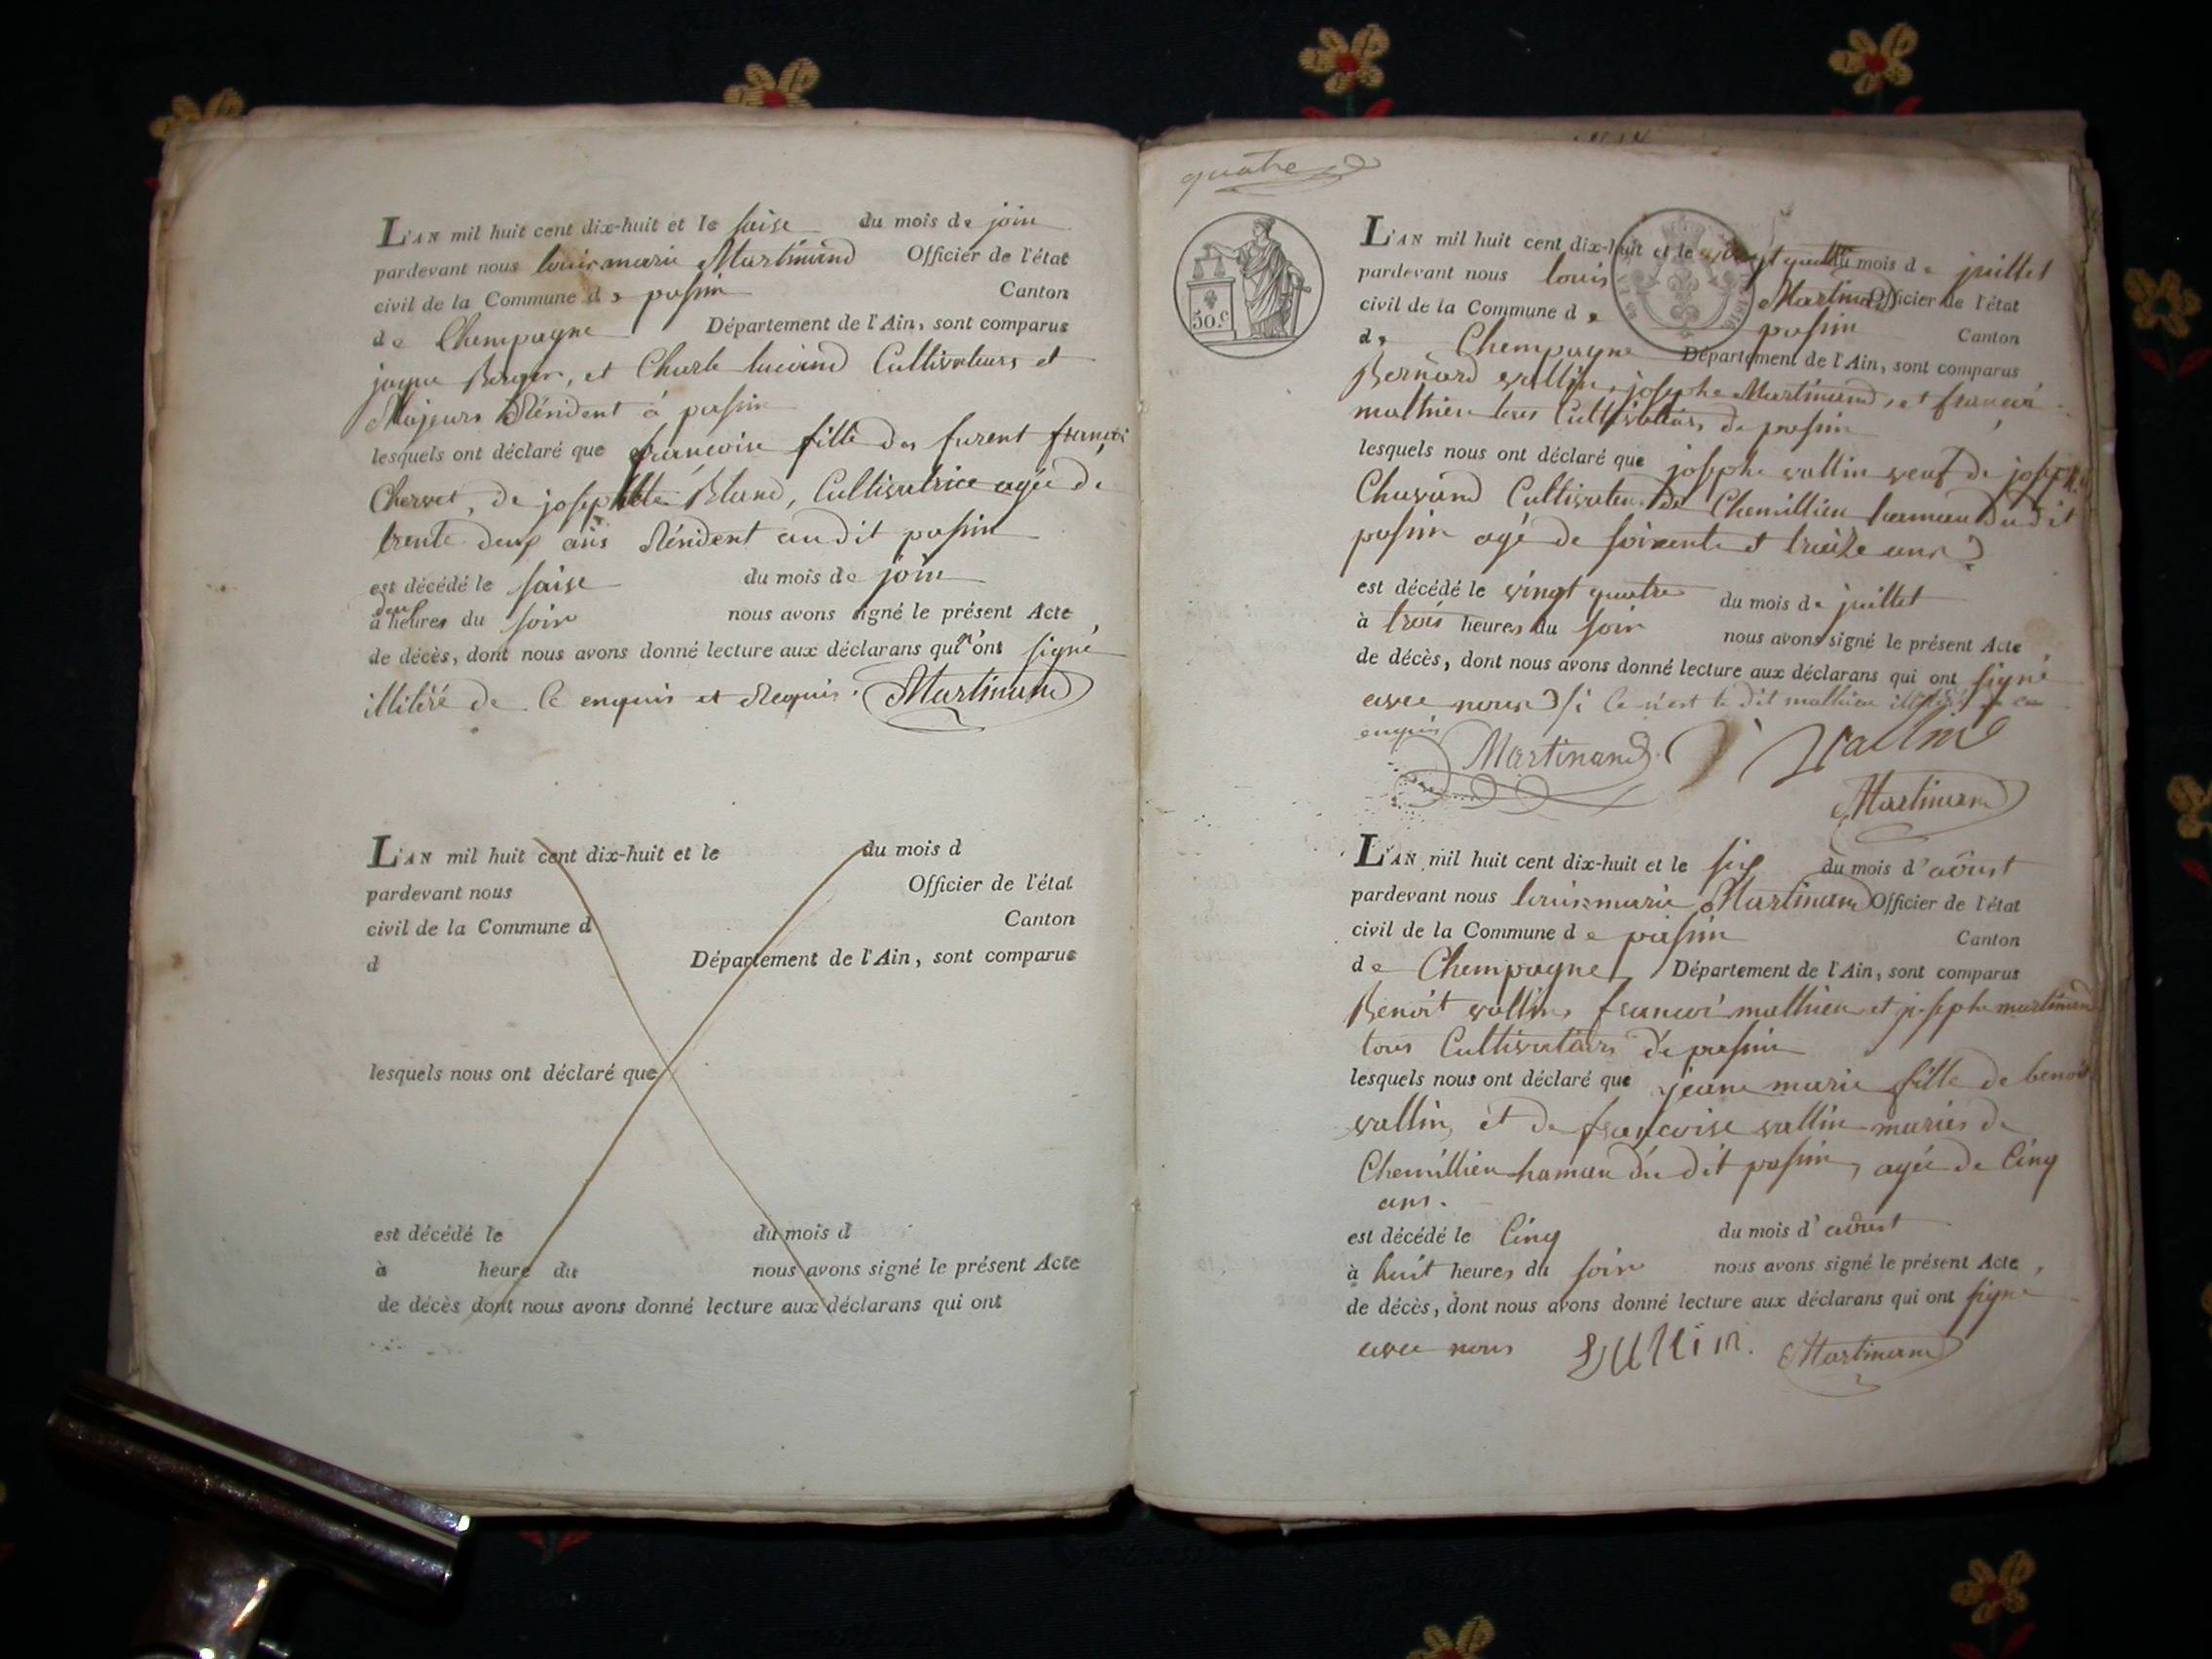 L'AN mil huit cent dix-huit et le saise du mois de join
pardevant nous louis marie Martinand Officier de l'état
civil de la Commune de passin Canton
de Champagne Département de l'Ain, sont comparus
jaque Berger, et Charle lucand Cultivateurs et
Majeurs Résident à passin
lesquels ont déclaré que francoise fille des furent francoi
Chervet, de josephte Bland, Cultivatrice agée de
trente deux ans Résident audit passin
est décédé le saise du mois de join
à deux heures du soir nous avons signé le présent Acte
de décès, dont nous avons donné lecture aux déclarans qui n'ont signé
illitéré de Ce enquis et Requis. Martinand
L'AN mil huit cent dix-huit et le du mois d
pardevant nous Officier de l'état
civil de la Commune d Canton
d Département de l'Ain, sont comparus
lesquels nous ont déclaré que
est décédé le du mois d
à heure du nous avons signé le présent Acte
de décès dont nous avons donné lecture aux déclarans qui ont
quatre
50.c
L'AN mil huit cent dix-huit et le vingt quattre du mois de juillet
pardevant nous louis Martinand Officier de l'état
civil de la Commune de passin Canton
de Champagne Département de l'Ain, sont comparus
Bernard vallin, josephe Martinand, et francoi
mathieu tous Cultivateurs de passin
lesquels nous ont déclaré que josephe vallin veuf de joseph
Chavand Cultivateur de Chemillieu hameau du dit
passin agé de soixente et traize ans
est décédé le vingt quatre du mois de juillet
à trois heures du soir nous avons signé le présent Acte
de décès, dont nous avons donné lecture aux déclarans qui ont signé
avec nous si Ce n'est le dit mathieu illitéré de ce
enquis
Martinand. Vallin
Martinand
L'AN mil huit cent dix-huit et le six du mois d'aoust
pardevant nous louis marie Martinand Officier de l'état
civil de la Commune de passin Canton
de Champagne Département de l'Ain, sont comparus
Benoit vallin, francoi mathieu et josephe martinand
tous Cultivateurs de passin
lesquels nous ont déclaré que jeane marie fille de benoit
vallin, et de francoise vallin mariés de
Chemillieu hamau du dit passin, agée de Cinq
ans.
est décédé le Cinq du mois d'aoust
à huit heures du soir nous avons signé le présent Acte
de décès, dont nous avons donné lecture aux déclarans qui ont signé
avec nous vallin. Martinand